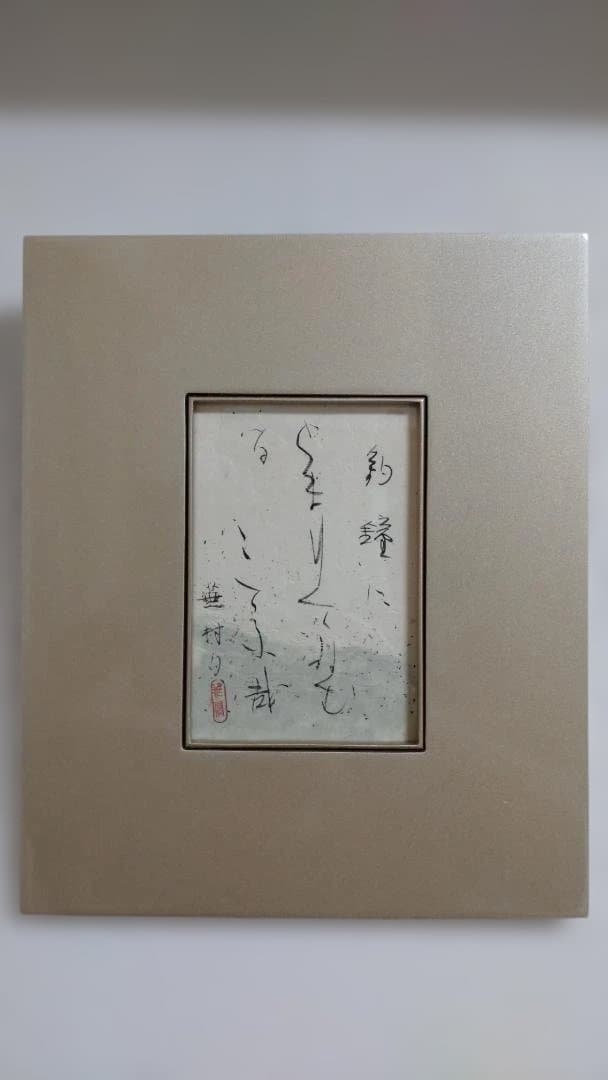 釣鐘に
とまりてねむ
る こてふ哉
蕪村句